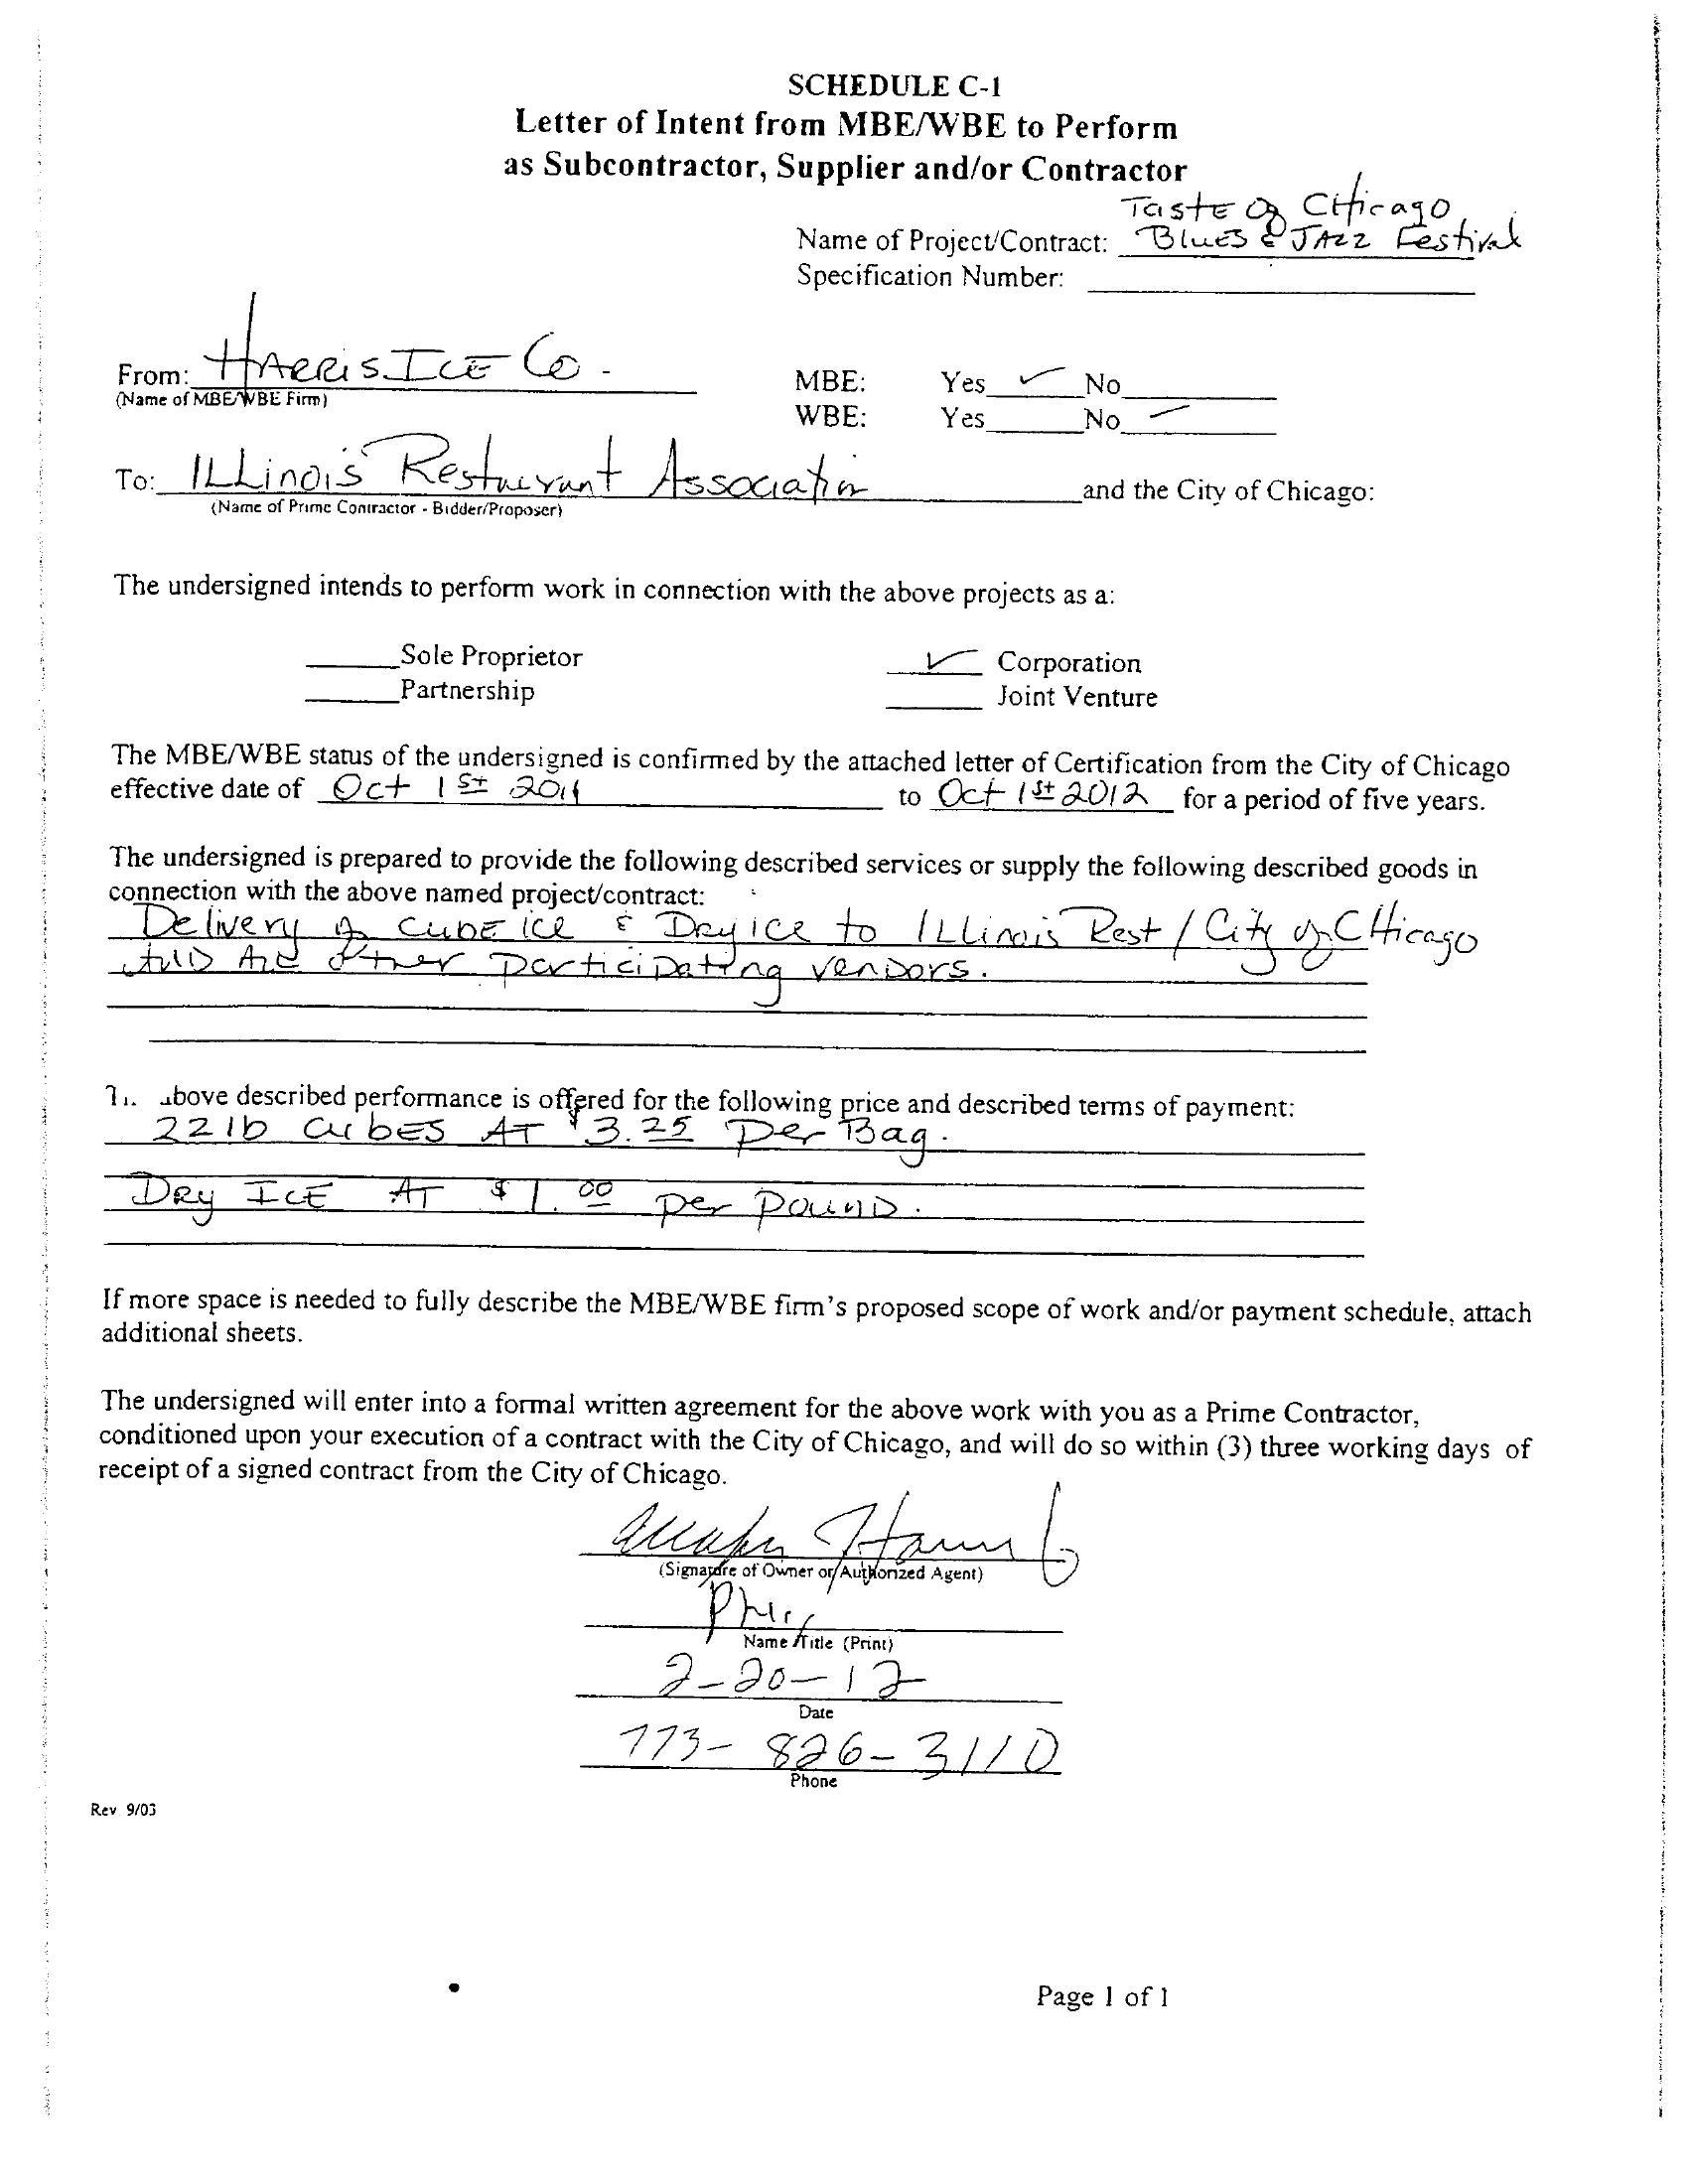 SCHEDULE C-1
Letter of Intent from MBE/WBE to Perform
as Subcontractor, Supplier and/or Contractor
Taste of Chicago
Name of Project/Contract: Blues & Jazz Festival
Specification Number:
From: Harris Ice Co.
(Name of MBE/WBE Firm)
MBE: Yes ✓ No
WBE: Yes No ✓
To: Illinois Restaurant Association and the City of Chicago:
(Name of Prime Contractor - Bidder/Proposer)
The undersigned intends to perform work in connection with the above projects as a:
Sole Proprietor ✓ Corporation
Partnership Joint Venture
The MBE/WBE status of the undersigned is confirmed by the attached letter of Certification from the City of Chicago
effective date of Oct 1st 2011 to Oct 1st 2012 for a period of five years.
The undersigned is prepared to provide the following described services or supply the following described goods in
connection with the above named project/contract:
Delivery of Cube ice & Dry ice to Illinois Rest / City of Chicago
other participating vendors.
above described performance is offered for the following price and described terms of payment:
22 lb cubes AT $3.25 Per Bag.
Dry Ice AT $1.00 per pound.
If more space is needed to fully describe the MBE/WBE firm's proposed scope of work and/or payment schedule, attach
additional sheets.
The undersigned will enter into a formal written agreement for the above work with you as a Prime Contractor,
conditioned upon your execution of a contract with the City of Chicago, and will do so within (3) three working days of
receipt of a signed contract from the City of Chicago.
(Signature of Owner or Authorized Agent)
Name /Title (Print)
2-20-12
Date
773-826-3110
Phone
Rev 9/03
Page 1 of 1